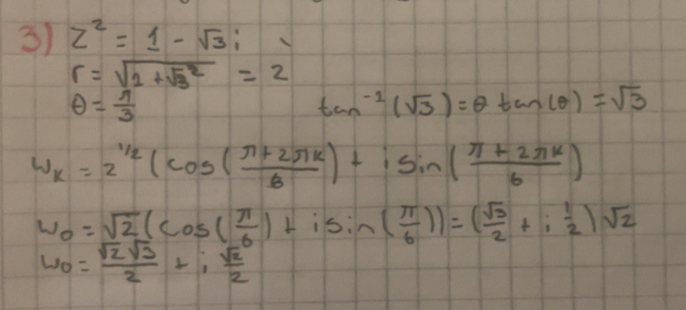 3) Z² = 1 - √3 i
r = √(1 + √3²) = 2
θ = π/3 tan⁻¹(√3) = θ tan(θ) = √3
w_k = 2^(1/2) (cos((π + 2πk)/6) + i sin((π + 2πk)/6)
w₀ = √2 (cos(π/6) + i sin(π/6)) = (√3/2 + i 1/2) √2
w₀ = √2 √3/2 + i √2/2